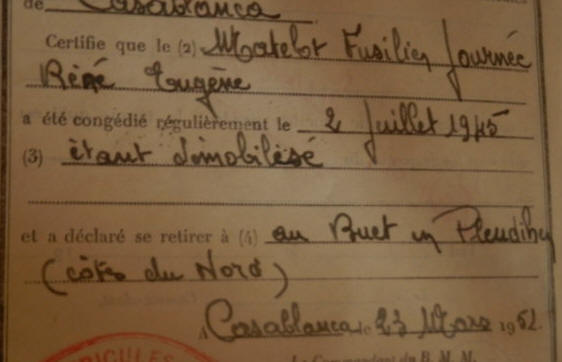 de Casablanca
Certifie que le (2) Matelot Fusilier Journée
Réné Eugène
a été congédié régulièrement le 2 Juillet 1945
(3) étant démobilisé
et a déclaré se retirer à (4) au Buet en Pleudihen
(côtes du Nord)
A Casablanca le 23 Mars 1962.
RICULES
Le Commandant du B. M. M.